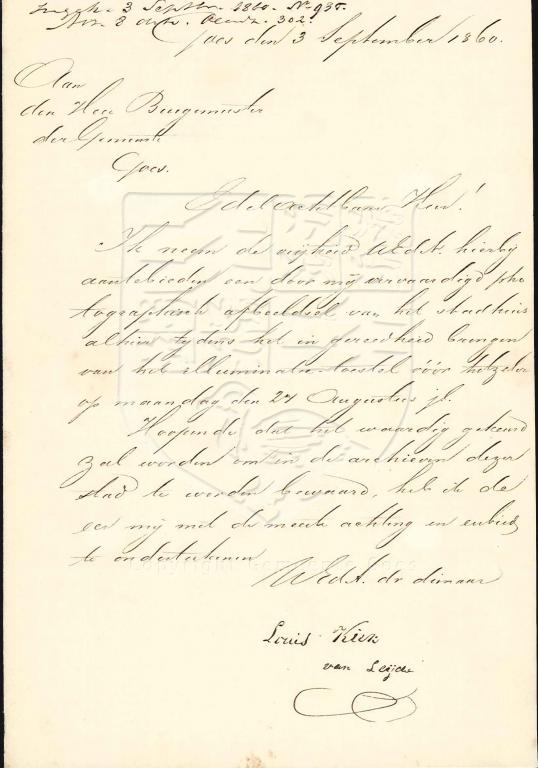 Ingek. 3 Septbr. 1860. No 937.
Not. 8 dito. Agenda. 302.
Goes den 3 September 1860.
Aan
den Heer Burgemeester
der Gemeente
Goes.
Edelachtbare Heer!
Ik neem de vrijheid UEdA. hierbij
aantebieden een door mij vervaardigd pho
tographisch afbeeldsel van het stadhuis
alhier tijdens het in gereedheid brengen
van het illuminatie-toestel vóór hetzelve
op maandag den 27 Augustus jl.
Hoopende dat het waardig gekeurd
zal worden om in de archieven dezer
stad te worden bewaard, heb ik de
eer mij met de meeste achting en eerbied
te onderteekenen
UEdA. dr dienaar
Louis Kiek
van Leijde
Copyright Gemeente Goes